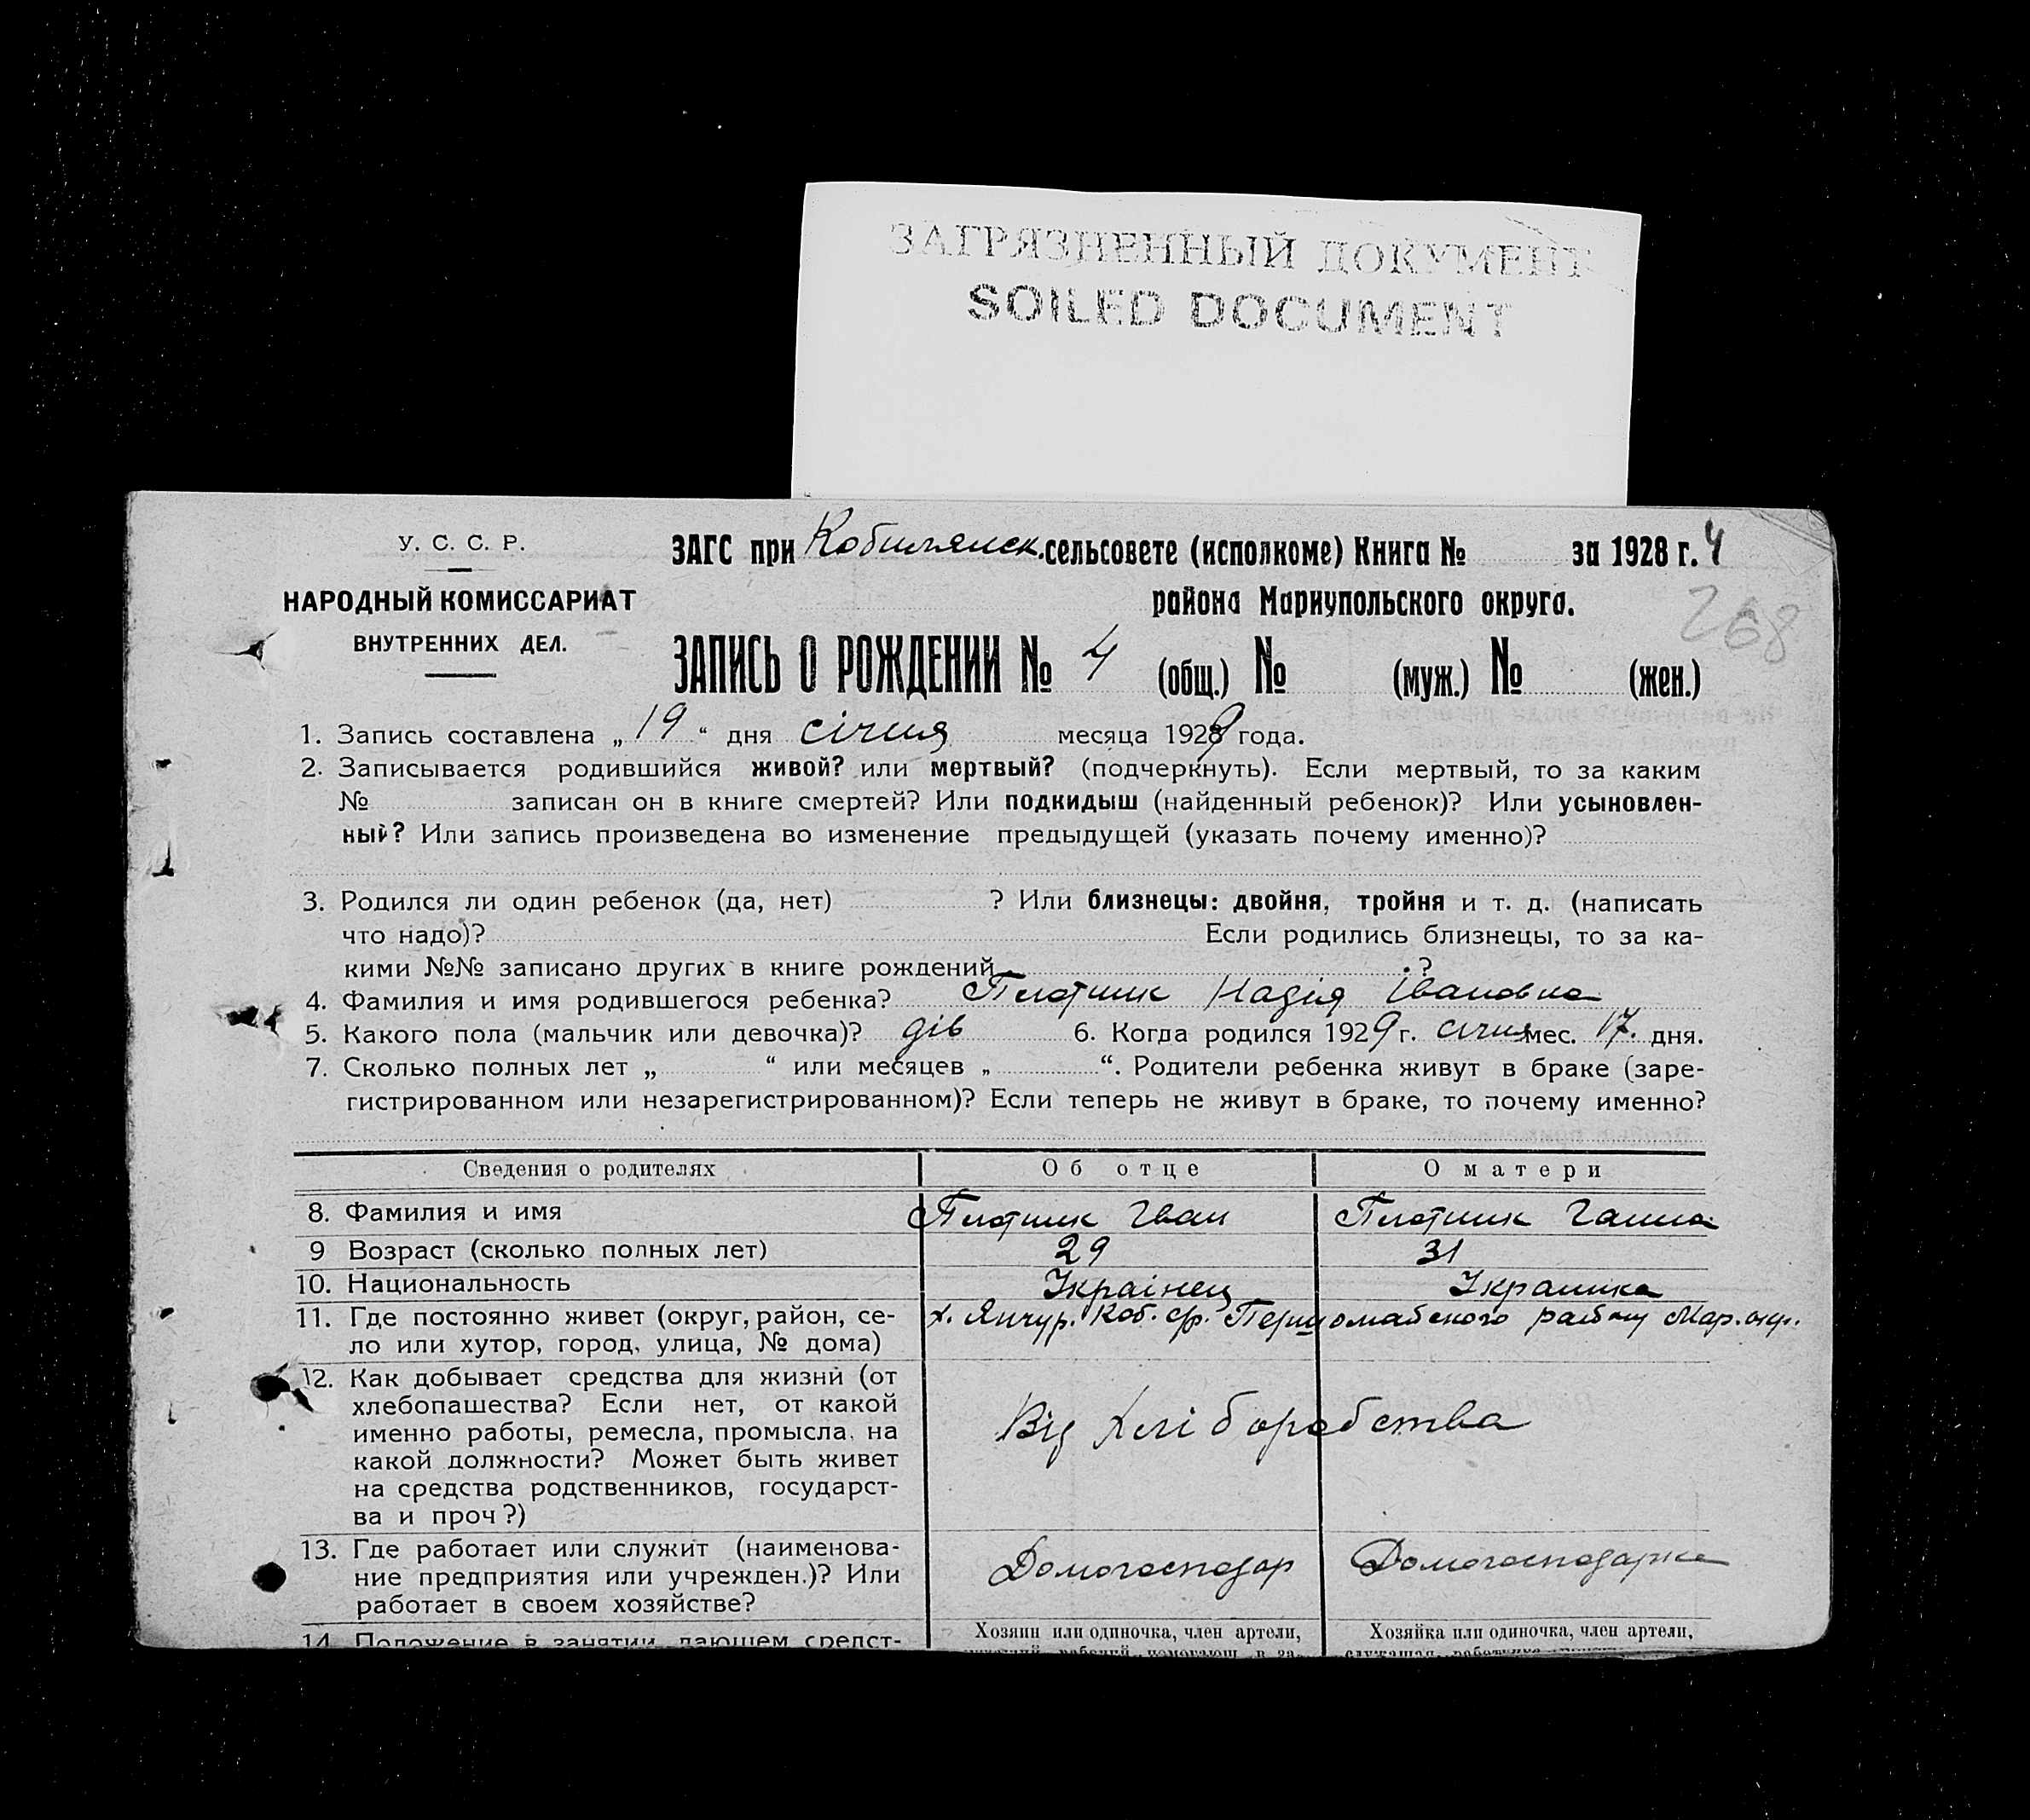 ЗАГРЯЗНЕННЫЙ ДОКУМЕНТ
SOILED DOCUMENT
У. С. С. Р.
НАРОДНЫЙ КОМИССАРИАТ
ВНУТРЕННИХ ДЕЛ.
ЗАГС при Кобилянск. сельсовете (исполкоме) Книга № за 1928 г. 4
района Мариупольского округа.
268
ЗАПИСЬ О РОЖДЕНИИ № 4 (общ.) № (муж.) № (жен.)
1. Запись составлена „19“ дня січня месяца 1929 года.
2. Записывается родившийся живой? или мертвый? (подчеркнуть). Если мертвый, то за каким
№ записан он в книге смертей? Или подкидыш (найденный ребенок)? Или усыновлен-
ный? Или запись произведена во изменение предыдущей (указать почему именно)?
3. Родился ли один ребенок (да, нет) ? Или близнецы: двойня, тройня и т. д. (написать
что надо)? Если родились близнецы, то за ка-
кими №№ записано других в книге рождений ?
4. Фамилия и имя родившегося ребенка? Плотник Надія Івановна
5. Какого пола (мальчик или девочка)? дів 6. Когда родился 1929 г. січня мес. 17. дня.
7. Сколько полных лет „ “ или месяцев „ “. Родители ребенка живут в браке (заре-
гистрированном или незарегистрированном)? Если теперь не живут в браке, то почему именно?
Сведения о родителях Об отце О матери
8. Фамилия и имя Плотник Іван Плотник Ганна
9 Возраст (сколько полных лет) 29 31
10. Национальность Украінец Украинка
11. Где постоянно живет (округ, район, се-
ло или хутор, город, улица, № дома)
х. Янчур. Коб. с/р. Першомайского району Мар. окр.
12. Как добывает средства для жизни (от
хлебопашества? Если нет, от какой
именно работы, ремесла, промысла, на
какой должности? Может быть живет
на средства родственников, государст-
ва и проч?)
Від хліборобства
13. Где работает или служит (наименова-
ние предприятия или учрежден.)? Или
работает в своем хозяйстве?
Домогосподар Домогосподарка
14. Положение в занятии, дающем средст-
Хозяин или одиночка, член артели,
Хозяйка или одиночка, член артели,